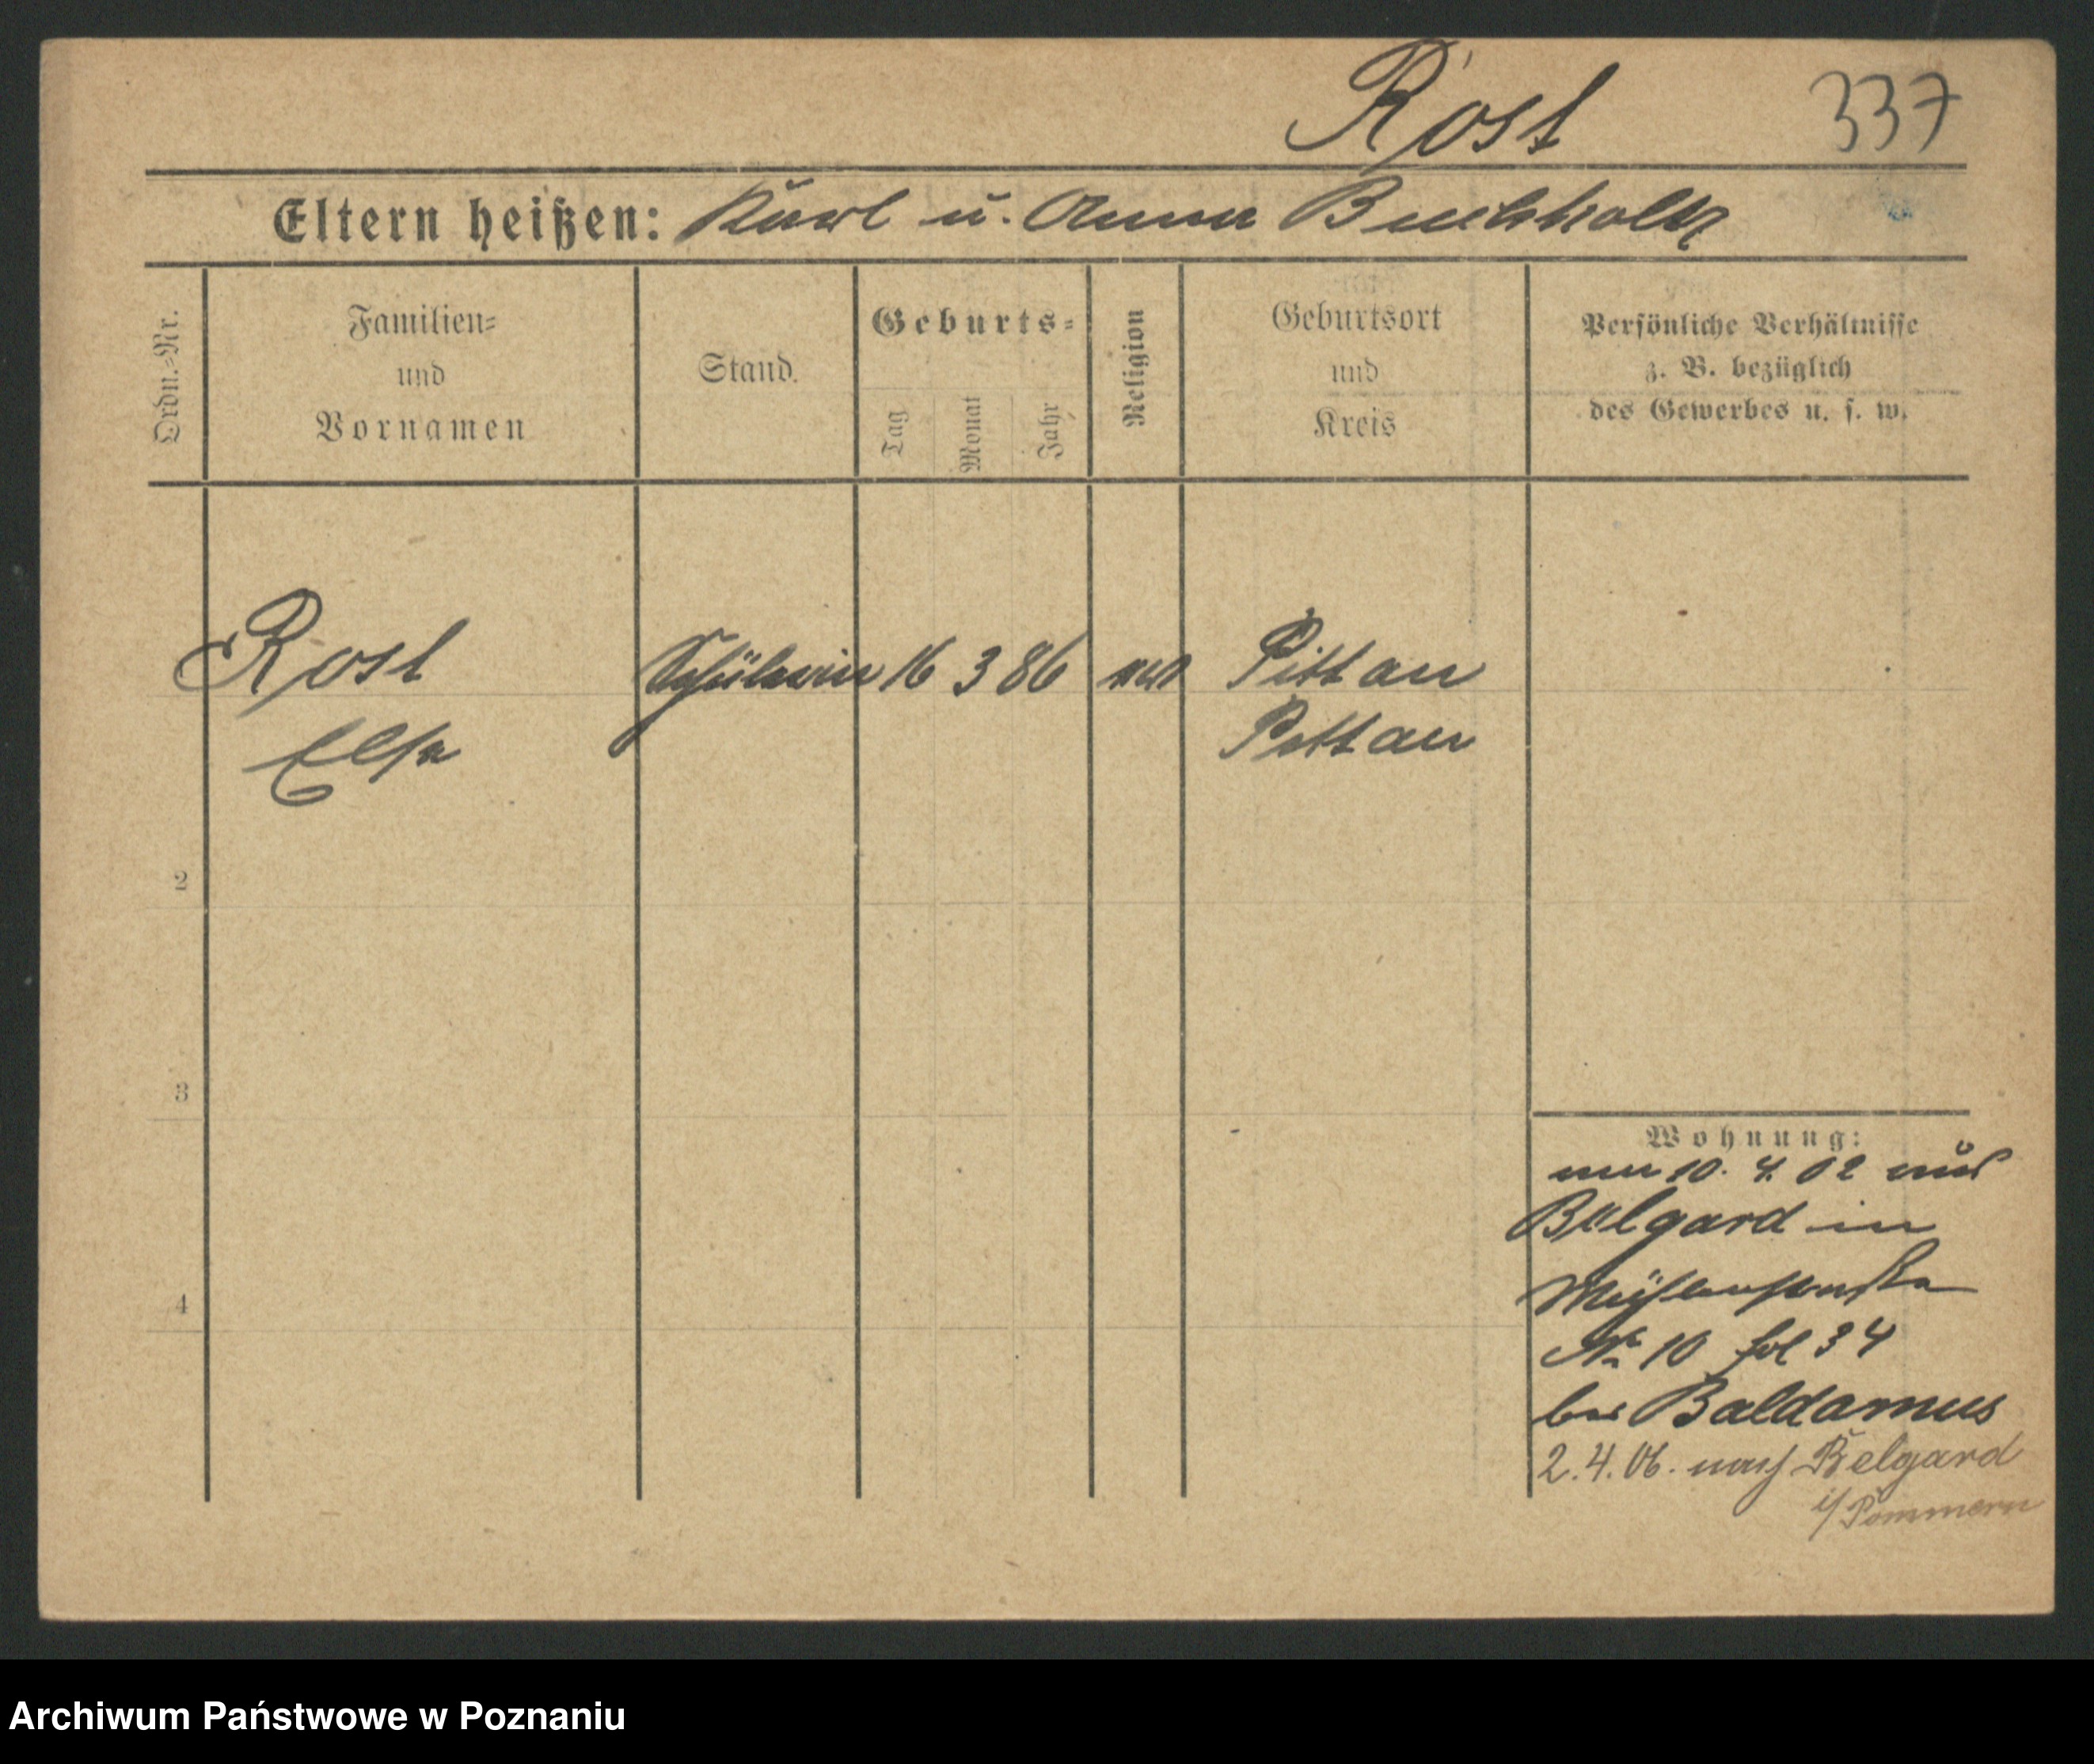 Rost 337
Eltern heißen: Karl u. Anna Buchholtz
Ordn.=Nr.
Familien=
und
Vornamen
Stand.
Geburts=
Tag
Monat
Jahr
Religion
Geburtsort
und
Kreis
Persönliche Verhältnisse
z. B. bezüglich
des Gewerbes u. s. w.
Rost Schülerin 16 3 86 Pittau
Else Pittau
2
3
4
Wohnung:
10. 4. 02 aus
Belgard in
Mühlenstraße
No 10 fol 34
bei Baldamus
2. 4. 06. nach Belgard
i/ Pommern
Archiwum Państwowe w Poznaniu